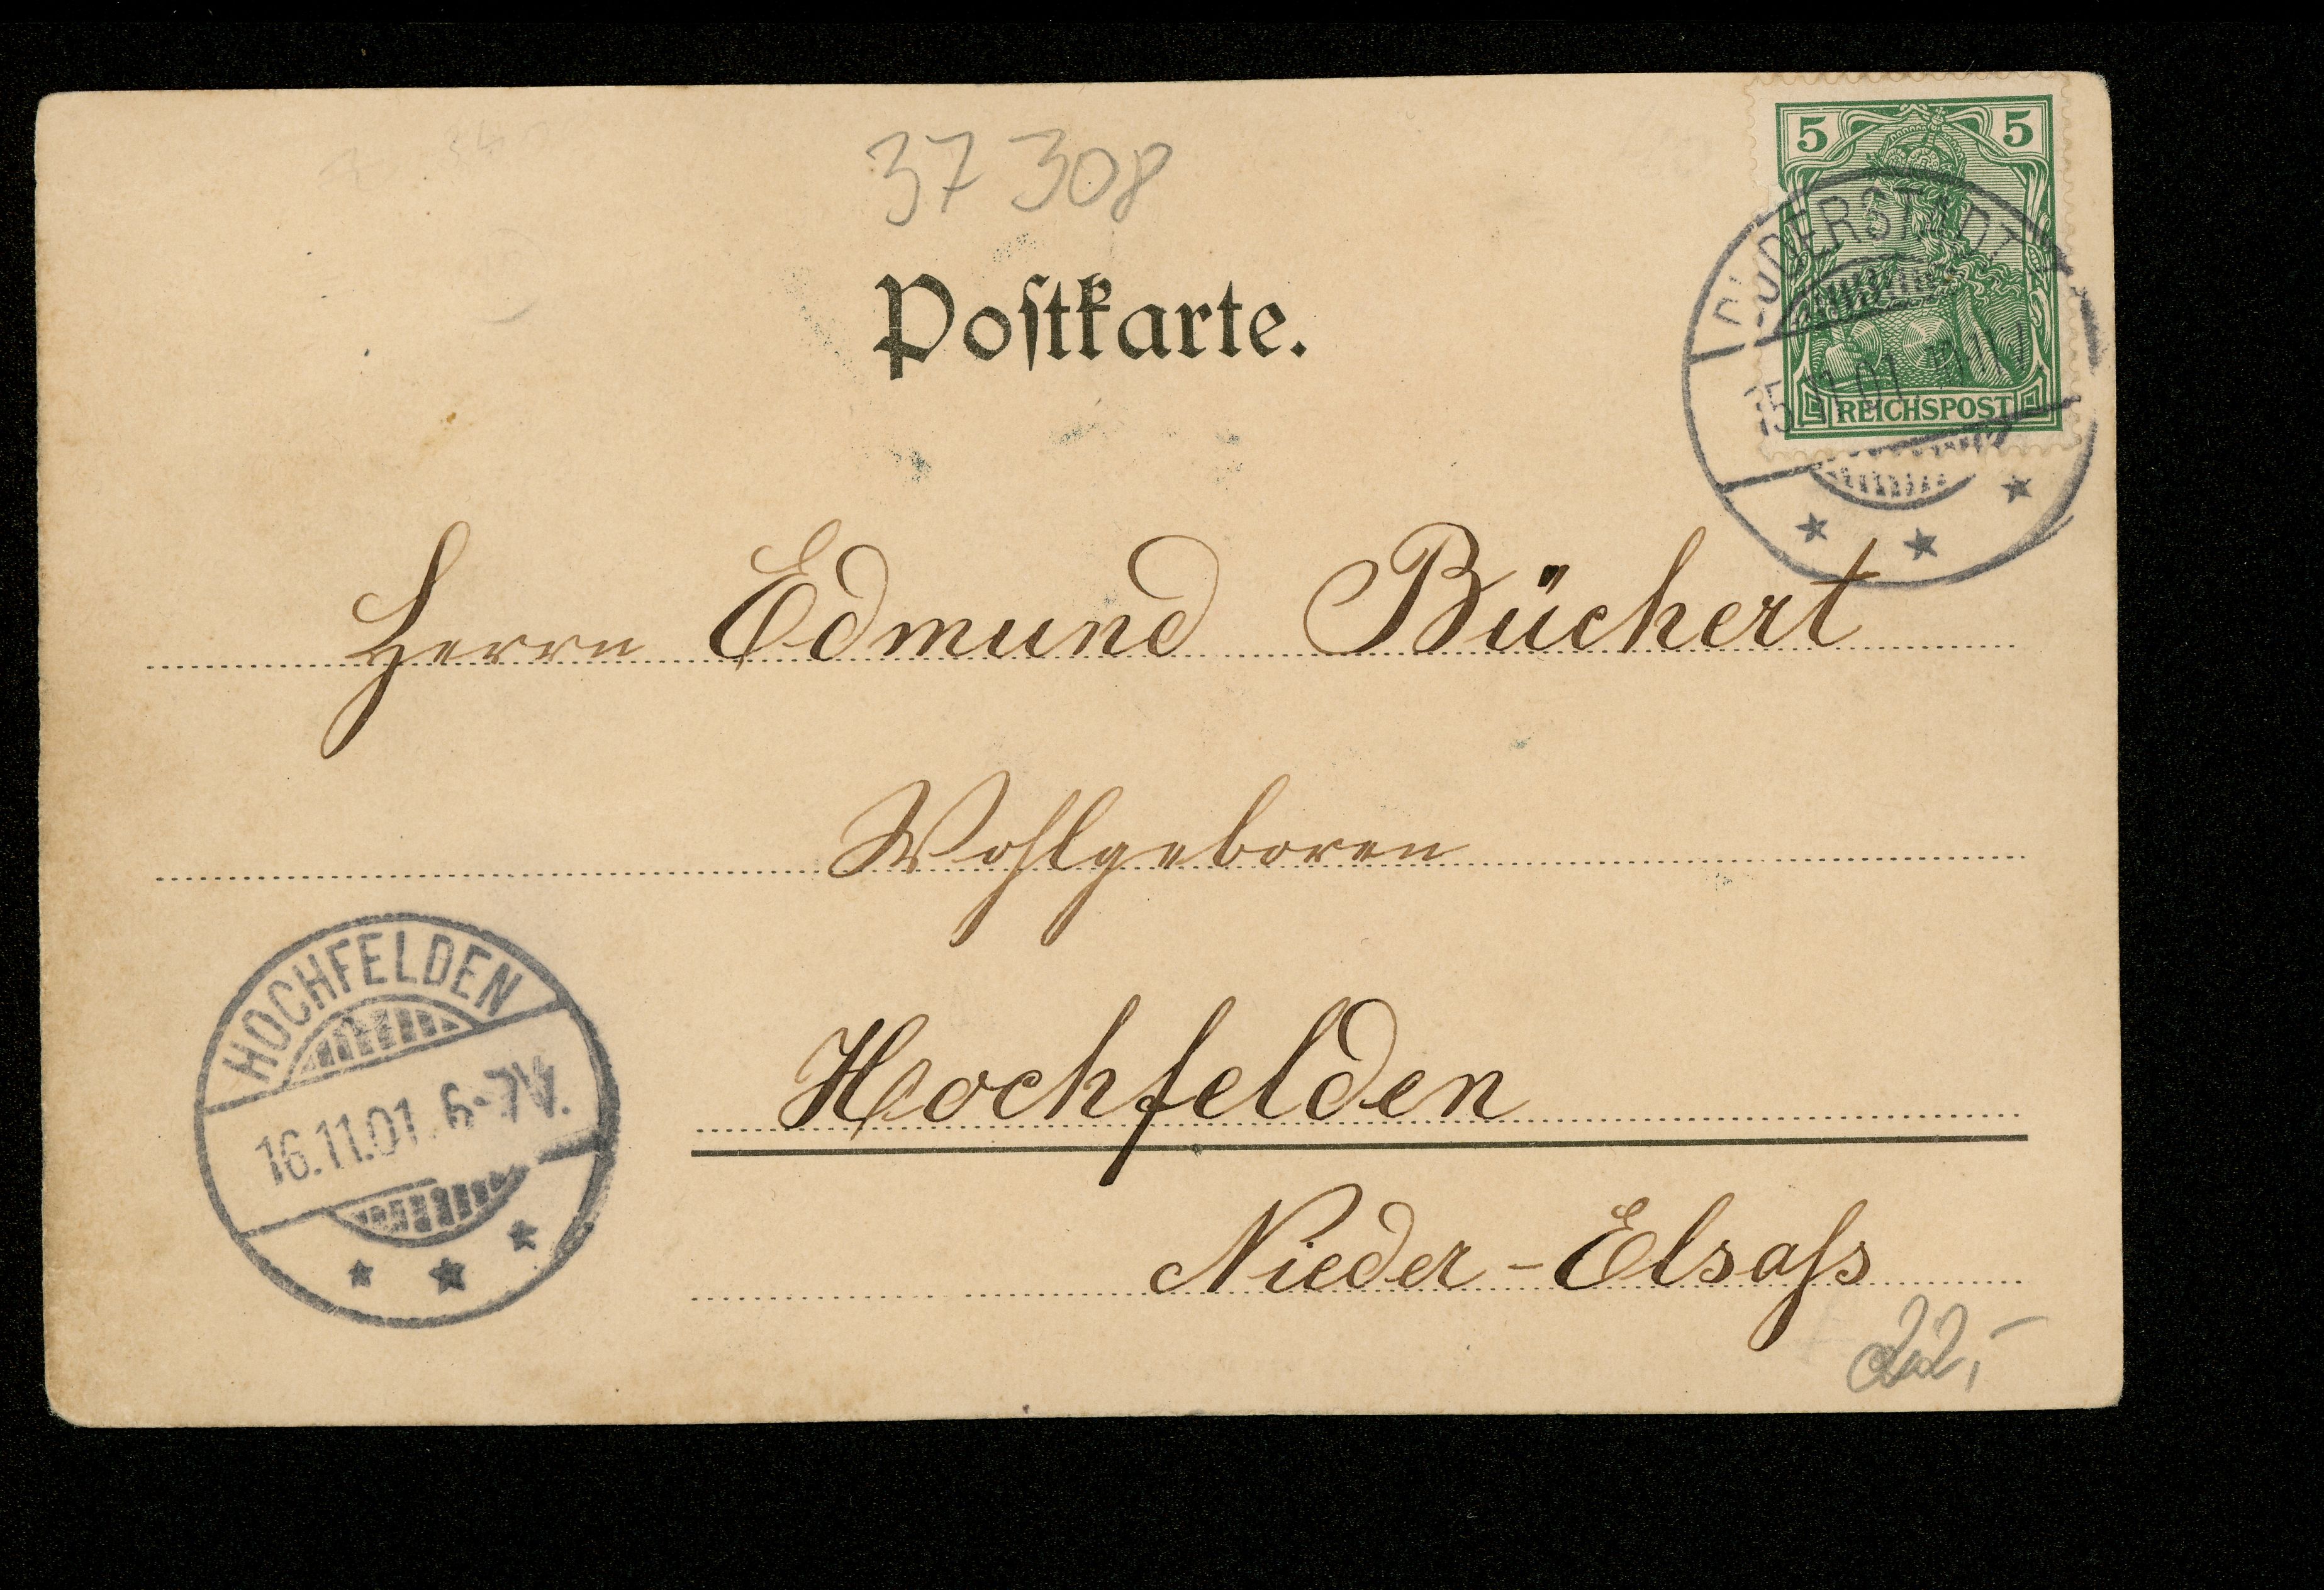 37 308
5 5
REICHSPOST
DUDERSTADT
15.11.01
Poſtkarte.
Herrn Edmund Büchert
Wohlgeboren
HOCHFELDEN
16.11.01. 6-7V.
Hochfelden
Nieder-Elsaſs
22,-